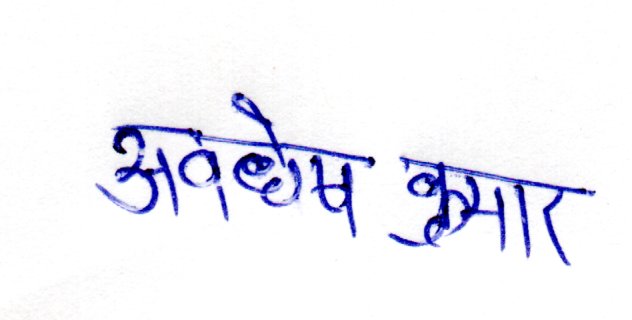 अवधेष कुमार